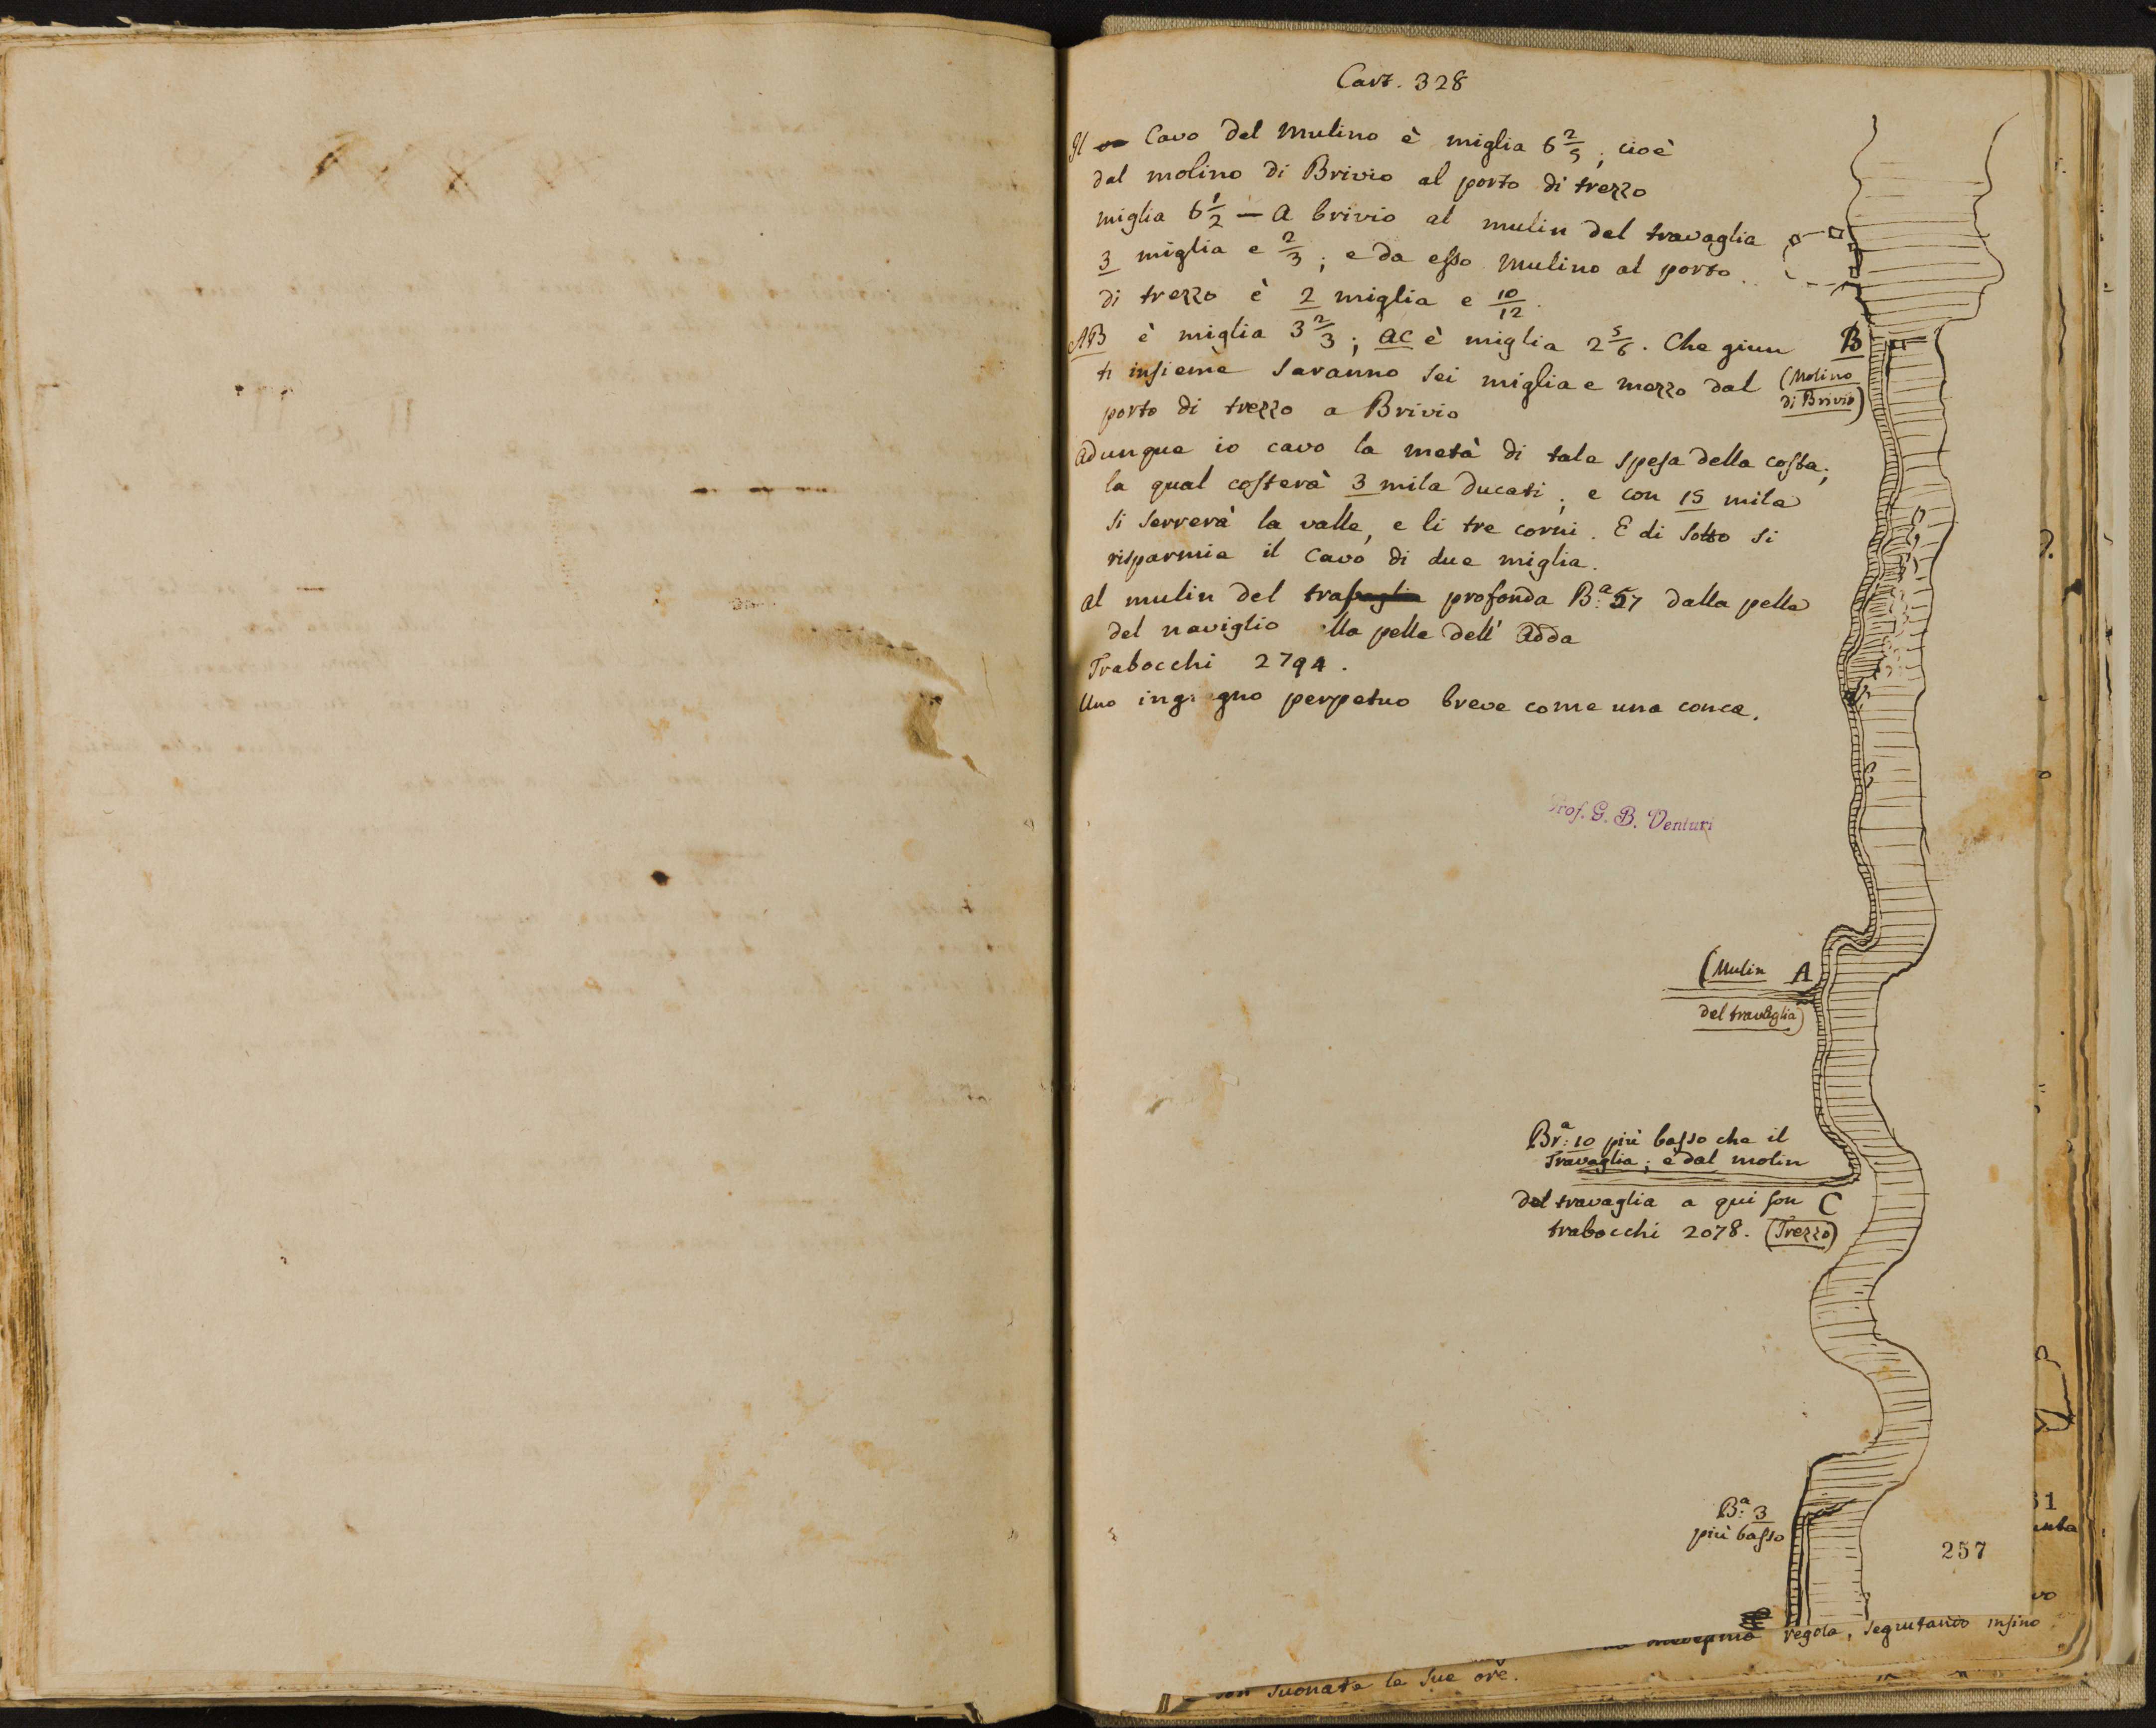 Cart. 328
Il Cavo del Mulino è miglia 6 2/5; cioè
dal molino di Brivio al porto di trezzo
miglia 6 1/2 — a brivio al mulin del travaglia
3 miglia e 2/3; e da esso Mulino al porto
di trezzo è 2 miglia e 10/12.
AB è miglia 3 2/3; ac è miglia 2 5/6. Che giun
ti insieme saranno sei miglia e mezzo dal
porto di trezzo a Brivio
B
(Molino
di Brivio)
adunque io cavo la metà di tale spesa della costa;
la qual costerà 3 mila ducati; e con 15 mila
si serrerà la valle, e li tre corni. E di sotto si
risparmia il cavo di due miglia.
al mulin del travaglia profonda B.a 57 dalla pelle
del naviglio lla pelle dell' Adda
Trabocchi 2794.
Uno ing gno perpetuo breve come una conca.
Prof. G. B. Venturi
(Mulin A
del travaglia)
Br.a: 10 più basso che il
Travaglia; e dal molin
del travaglia a qui son C
trabocchi 2078. (Trezzo)
B.a: 3
più basso
257
31
regola, seguitando insino
suonate le sue ore.